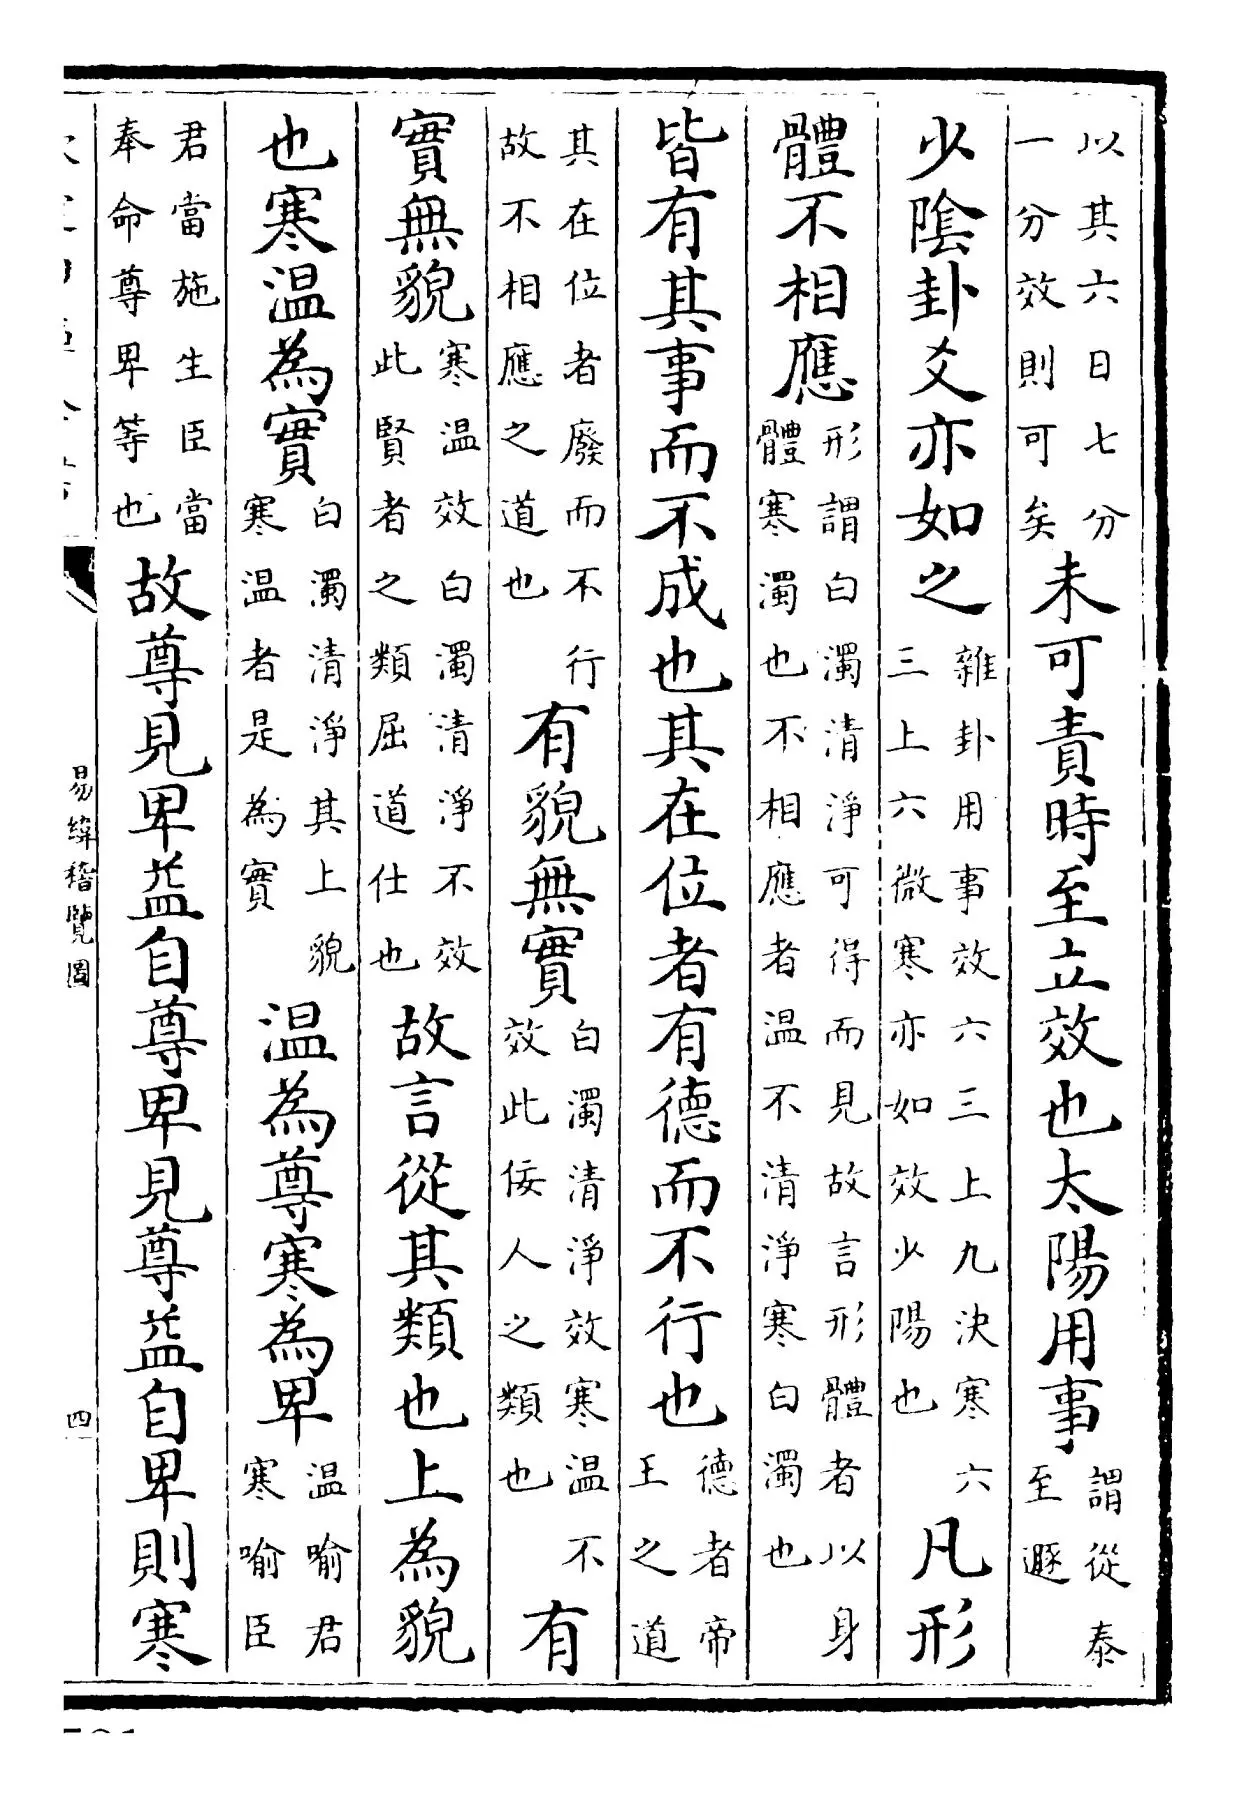 以其六日七分一分效則可矣未可責時至立效也太陽用事謂從泰至遯
少陰卦爻亦如之雜卦用事效六三上九決寒六三上六微寒亦如效少陽也凡形
體不相應形謂白濁清淨可得而見故言形體者以身體寒濁也不相應者温不清淨寒白濁也
皆有其事而不成也其在位者有德而不行也德者帝王之道
其在位者廢而不行故不相應之道也有貌無實白濁清淨效寒温不效此佞人之類也有
實無貌寒温效白濁清淨不效此賢者之類屈道仕也故言從其類也上為貌
也寒温為實白濁清淨其上貌寒温者是為實温為尊寒為卑温喻君寒喻臣
君當施生臣當奉命尊卑等也故尊見卑益自尊卑見尊益自卑則寒
易緯稽覽圖
四